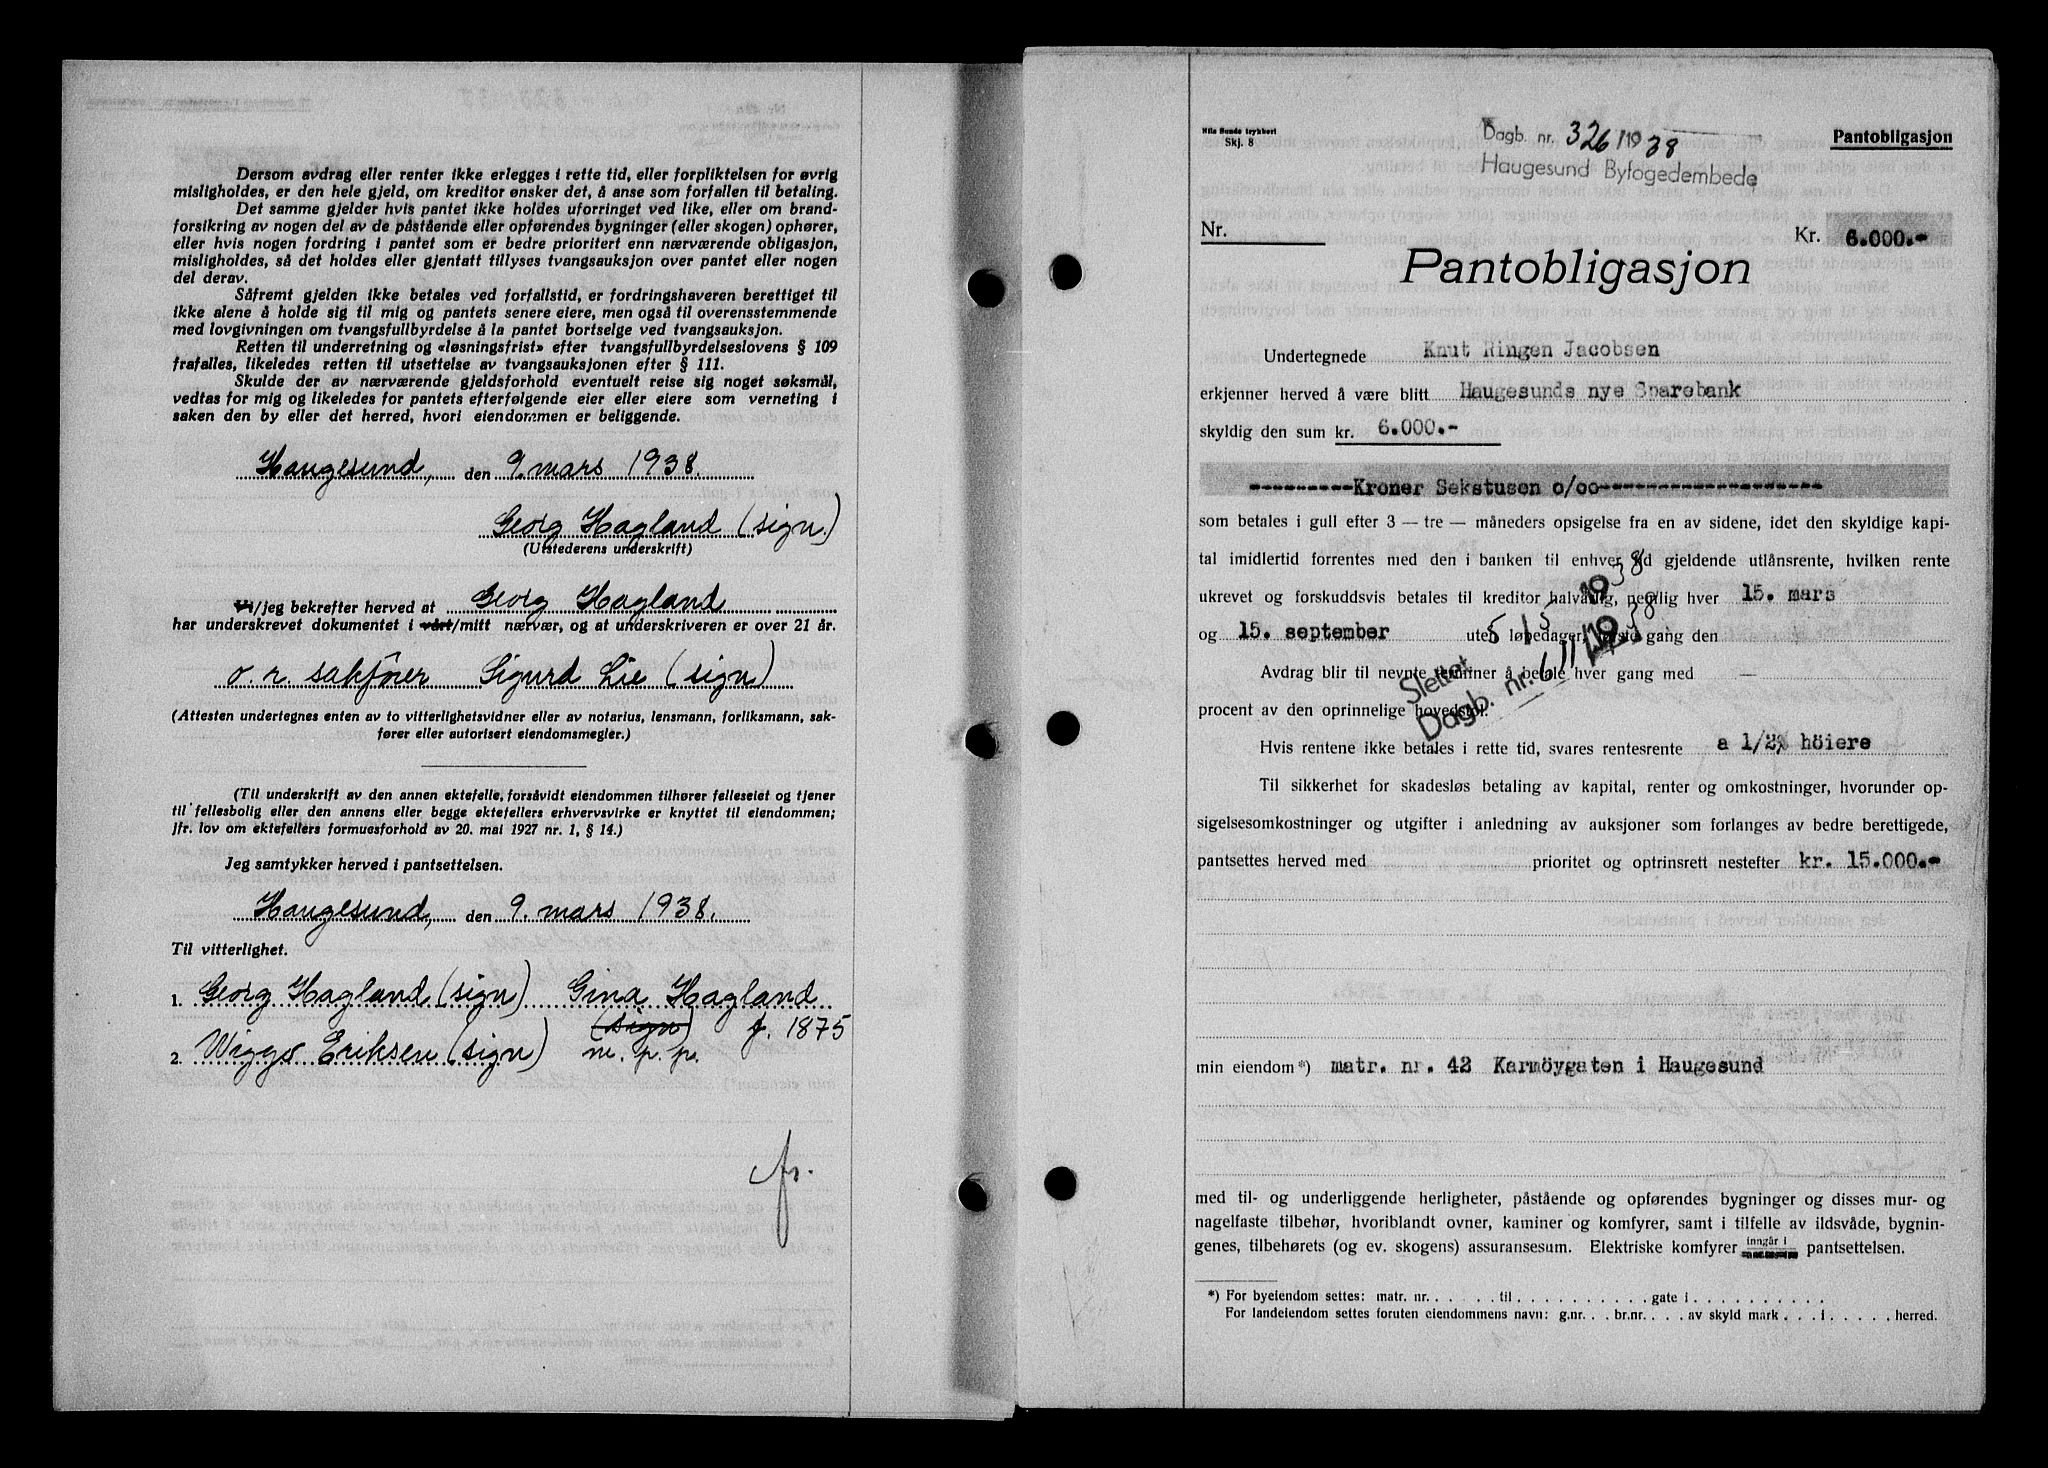 Dersom avdrag eller renter ikke erlegges i rette tid, eller forpliktelsen for øvrig
misligholdes, er den hele gjeld, om kreditor ønsker det, å anse som forfallen til betaling.
Det samme gjelder hvis pantet ikke holdes uforringet ved like, eller om brand-
forsikring av nogen del av de påstående eller opførendes bygninger (eller skogen) ophører,
eller hvis nogen fordring i pantet som er bedre prioritert enn nærværende obligasjon,
misligholdes, så det holdes eller gjentatt tillyses tvangsauksjon over pantet eller nogen
del derav.
Såfremt gjelden ikke betales ved forfallstid, er fordringshaveren berettiget til
ikke alene å holde sig til mig og pantets senere eiere, men også til overensstemmende
med lovgivningen om tvangsfullbyrdelse å la pantet bortselge ved tvangsauksjon.
Retten til underretning og «løsningsfrist» efter tvangsfullbyrdelseslovens § 109
frafalles, likeledes retten til utsettelse av tvangsauksjonen efter § 111.
Skulde der av nærværende gjeldsforhold eventuelt reise sig noget søksmål,
vedtas for mig og likeledes for pantets efterfølgende eier eller eiere som verneting i
saken den by eller det herred, hvori eiendommen er beliggende.
Haugesund, den 9. mars 1938.
Georg Hagland (sign)
(Utstederens underskrift)
Vi/jeg bekrefter herved at Georg Hagland
har underskrevet dokumentet i vårt/mitt nærvær, og at underskriveren er over 21 år.
o. r. sakfører Sigurd Lie (sign)
(Attesten undertegnes enten av to vitterlighetsvidner eller av notarius, lensmann, forliksmann, sak-
fører eller autorisert eiendomsmegler.)
(Til underskrift av den annen ektefelle, forsåvidt eiendommen tilhører felleseiet og tjener
til fellesbolig eller den annens eller begge ektefellers erhvervsvirke er knyttet til eiendommen;
jfr. lov om ektefellers formuesforhold av 20. mai 1927 nr. 1, § 14.)
Jeg samtykker herved i pantsettelsen.
Haugesund, den 9. mars 1938.
Til vitterlighet.
1. Georg Hagland (sign) Gina Hagland
(sign) f. 1875
2. Wiggo Eriksen (sign) m. p. p.
fr.
Nils Sunds trykkeri
Skj. 8
Dagb. nr. 326/1938
Haugesund Byfogedembede
Pantobligasjon
Nr.
Kr. 6.000.-
Pantobligasjon
Undertegnede Knut Ringen Jacobsen
erkjenner herved å være blitt Haugesunds nye Sparebank
skyldig den sum kr. 6.000.-
----------Kroner Sekstusen o/oo--------------------
som betales i gull efter 3 — tre — måneders opsigelse fra en av sidene, idet den skyldige kapi-
tal imidlertid forrentes med den i banken til enhver tid gjeldende utlånsrente, hvilken rente
ukrevet og forskuddsvis betales til kreditor halvårlig, nemlig hver 15. mars
og 15. september uten løpedager, første gang den
Avdrag blir til nevnte terminer å betale hver gang med —
procent av den oprinnelige hovedstol.
Slettet 5/5 1938
Dagb. nr. 611/1938
Hvis rentene ikke betales i rette tid, svares rentesrente a 1/2% höiere
Til sikkerhet for skadesløs betaling av kapital, renter og omkostninger, hvorunder op-
sigelsesomkostninger og utgifter i anledning av auksjoner som forlanges av bedre berettigede,
pantsettes herved med prioritet og optrinsrett nestefter kr. 15.000.-
min eiendom*) matr. nr. 42 Karmöygaten i Haugesund
med til- og underliggende herligheter, påstående og opførendes bygninger og disses mur- og
nagelfaste tilbehør, hvoriblandt ovner, kaminer og komfyrer, samt i tilfelle av ildsvåde, bygnin-
genes, tilbehørets (og ev. skogens) assuransesum. Elektriske komfyrer inngår i pantsettelsen.
*) For byeiendom settes: matr. nr. . . . . . til . . . . . . . . . . . gate i . . . . . . . . . .
For landeiendom settes foruten eiendommens navn: g.nr. . . br.nr. . . . av skyld mark . . . i . . . . . herred.